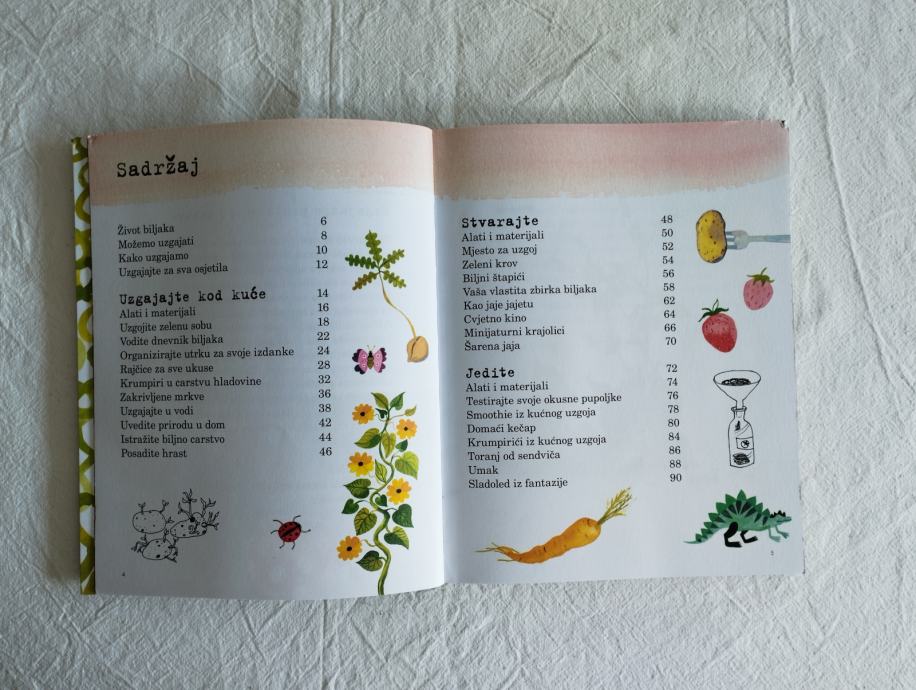 Sadržaj
Život biljaka 6
Možemo uzgajati 8
Kako uzgajamo 10
Uzgajajte za sva osjetila 12
Uzgajajte kod kuće 14
Alati i materijali 16
Uzgojite zelenu sobu 18
Vodite dnevnik biljaka 22
Organizirajte utrku za svoje izdanke 24
Rajčice za sve ukuse 28
Krumpiri u carstvu hladovine 32
Zakrivljene mrkve 36
Uzgajajte u vodi 38
Uvedite prirodu u dom 42
Istražite biljno carstvo 44
Posadite hrast 46
4
Stvarajte 48
Alati i materijali 50
Mjesto za uzgoj 52
Zeleni krov 54
Biljni štapići 56
Vaša vlastita zbirka biljaka 58
Kao jaje jajetu 62
Cvjetno kino 64
Minijaturni krajolici 66
Šarena jaja 70
Jedite 72
Alati i materijali 74
Testirajte svoje okusne pupoljke 76
Smoothie iz kućnog uzgoja 78
Domaći kečap 80
Krumpirići iz kućnog uzgoja 84
Toranj od sendviča 86
Umak 88
Sladoled iz fantazije 90
5